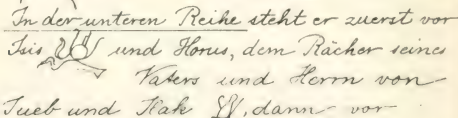 In der unteren Reihe steht er zuerst vor
Isis und Horus, dem Rächer seines
Vaters und Herrn von
Tueb und Hak, dann vor